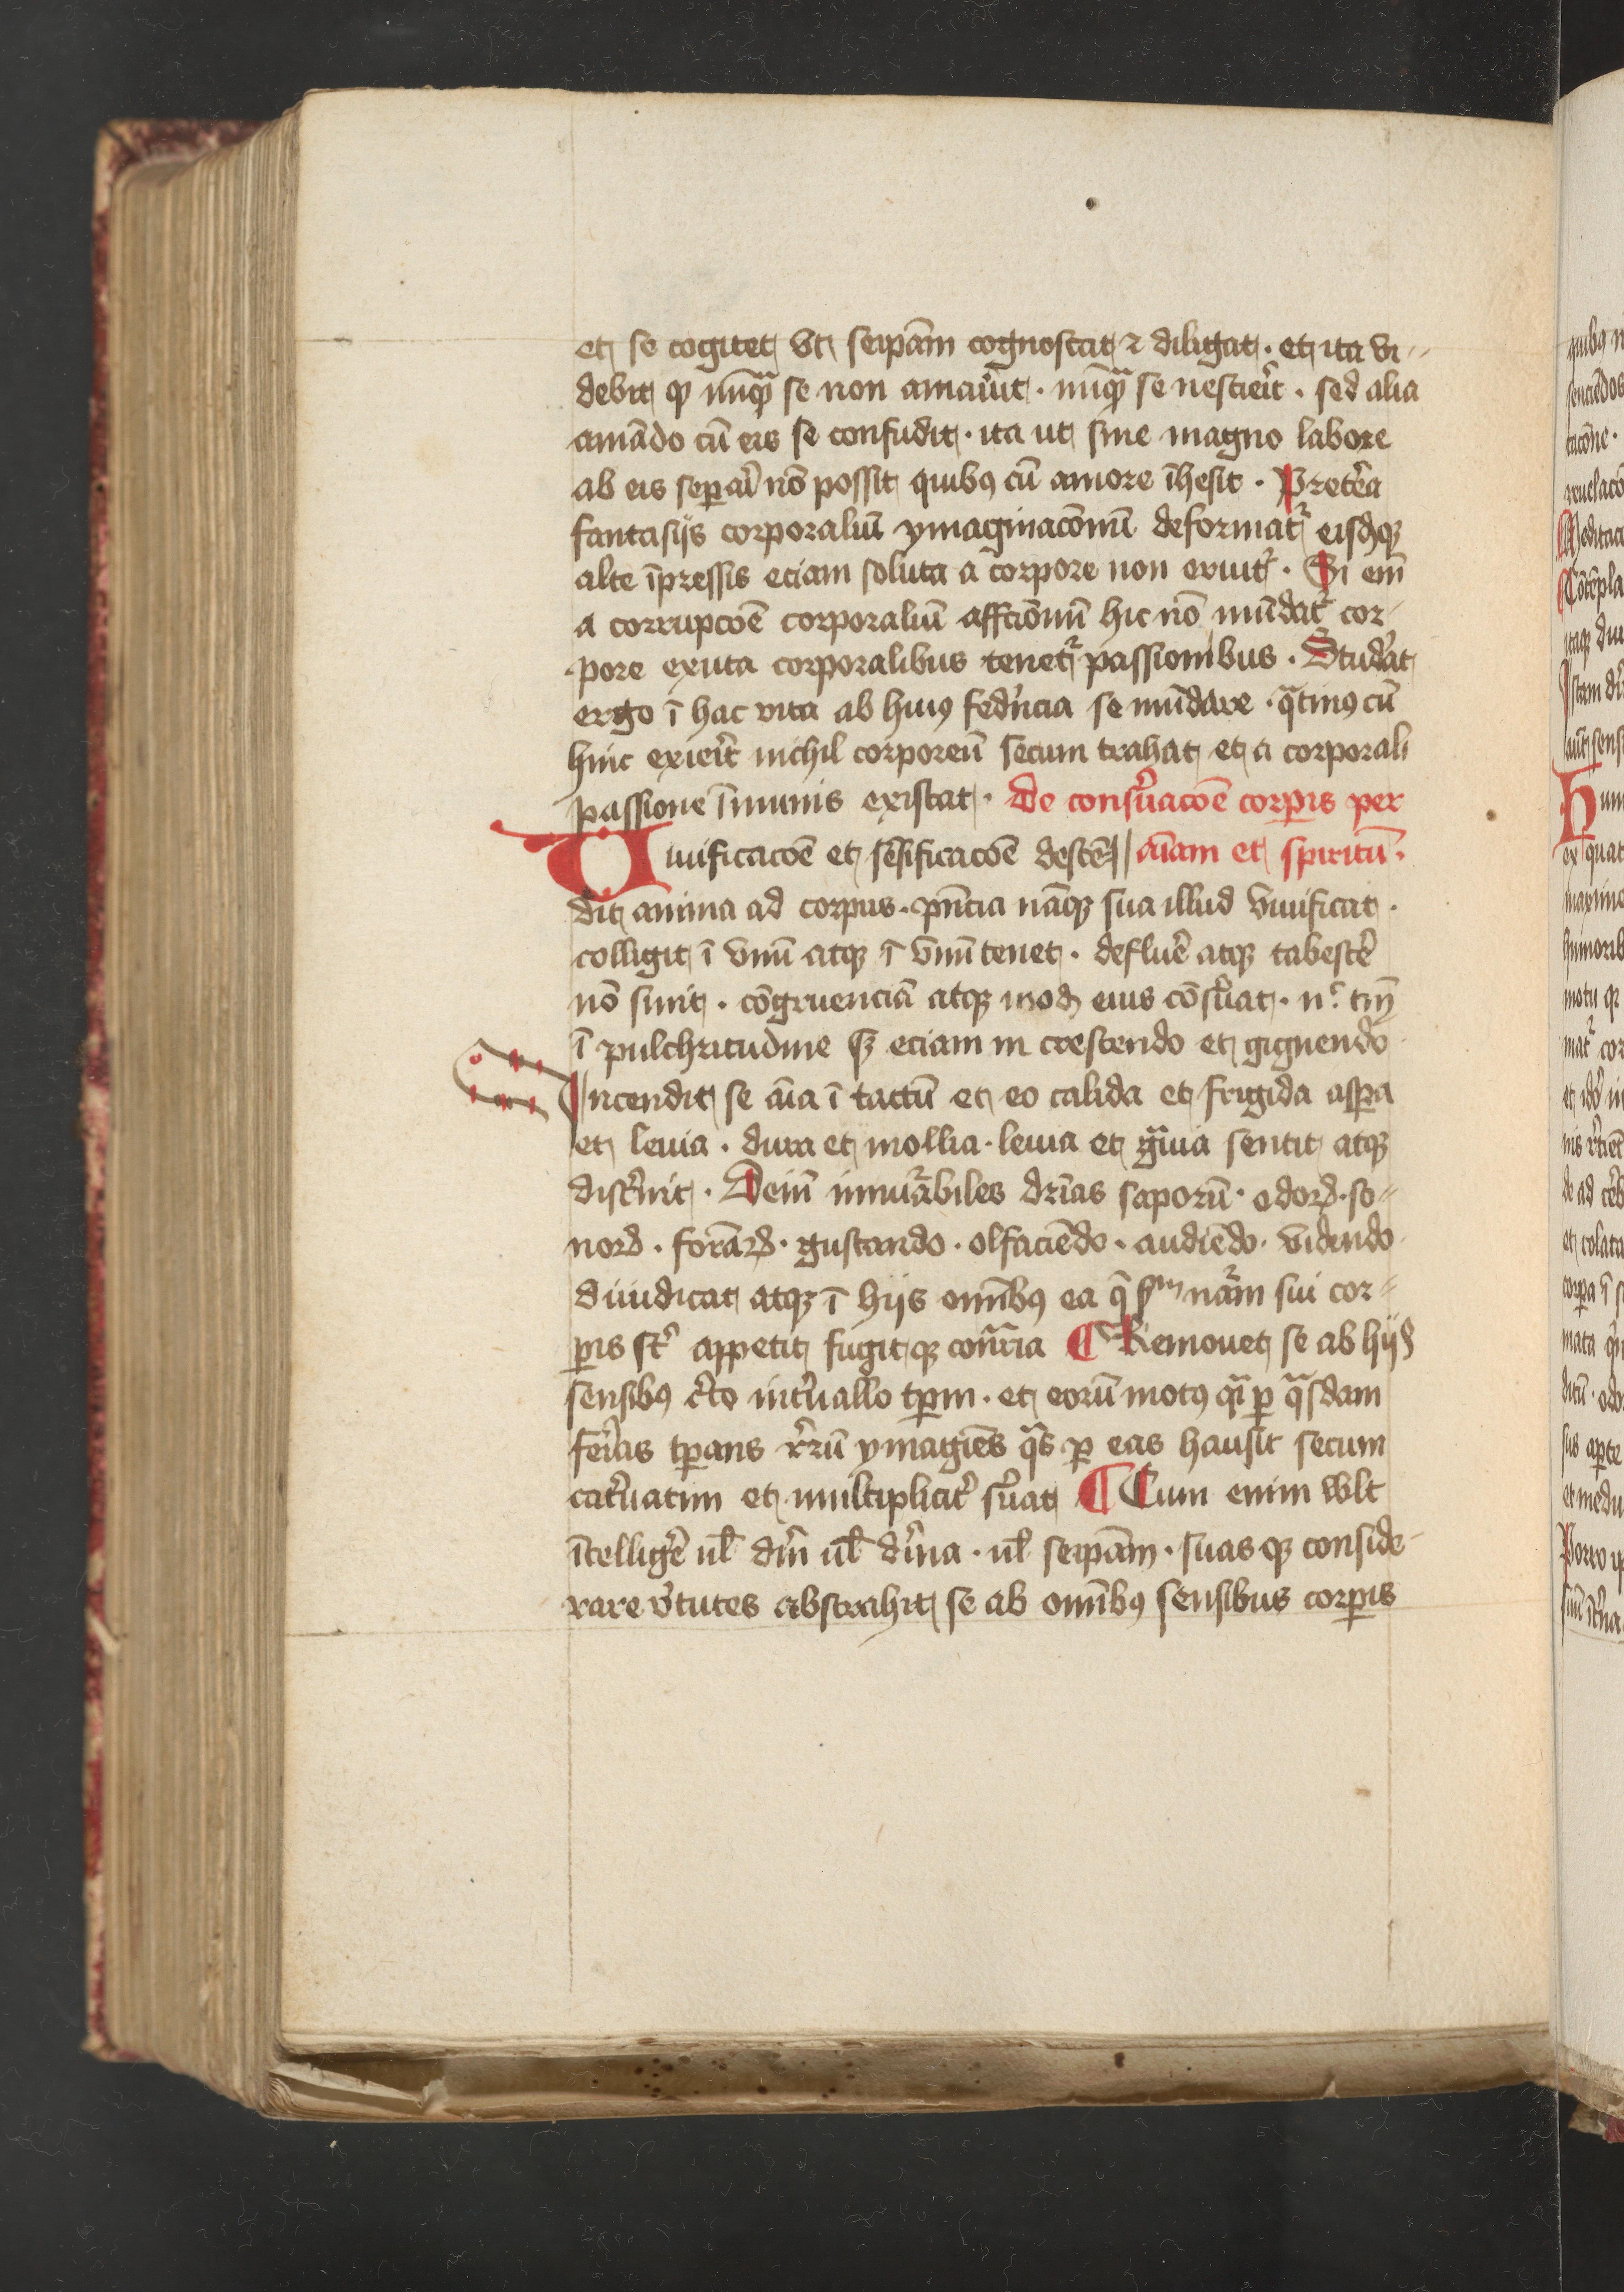 et se cogitet vt seip̄am cognoscat ⁊ diligat · et ita vi-
debit ꝙ nūqᷓ se non amaũit · nūqᷓ se nescieřt · sed alia
amādo cū eis se confudit · ita ut sine magno labore
ab eis separaři nō possit quibꝰ cū amore īhesit · Pretēa
fantasijs corporaliū ymaginacōnū deformatᷣ eisdēqꝫ
alte īpressis eciam soluta a corpore non exuitᷣ · Si em̄
a corrupcōe corporaliū affc̄ionū hic nō mūdatᷣ cor-
pore exuta corporalibus tenetᷣ passionibus · Studeat
ergo ī hac vita ab huiꝰ fedn̄cia se mūdare · qᷓtinꝰ cū
hinc exieřt nichil corporeū secum trahat et a corporali
passione īmunis existat · De consͬuacōe corpis per
Uiuificacōe et sēsificacōe descē‖ aīam et spiritū ·
dit anima ad corpus · pn̄cia nāqꝫ sua illud viuificat ·
colligit ī vnū atqꝫ ī vnū tenet · defluēe atqꝫ tabescēe
nō sinit · cōgruenciā atqꝫ modū eius cōsͬuat · nͨ tm̄
ī pulchritudine sꝫ eciam in crescendo et gignendo
Incendit se aīa ī tactū et eo calida et frigida aspa
et leuia · dura et mollia · leuia et gᷓuia sentit atqꝫ
discͬnit · Dein̄ innuͬabiles drn̄as saporū · odorꝝ · so-
norꝝ · formarꝝ · gustando · olfaciēdo · audiēdo · videndo
diiudicat atqꝫ ī hijs omībꝰ ea q̄ sᵐ nāᷓm sui cor-
pis sᷓt appetit fugitqꝫ contͬria ¶ Remouet se ab hijs
sensibꝰ cͬto intͬuallo tp̄m · et eorū motꝰ qᷓi ꝑ qᷓsdam
feͬias tp̄ans rͬrū ymagīes qᷓs ꝑ eas hausit secum
catͬuatim et multiplicitͬ sͬuat ¶ Cum enim wlt
ītelligēe ul̄ dm̄ ul̄ dīina · ul̄ seip̄am · suasqꝫ conside-
rare vͬtutes abstrahit se ab omībꝰ sensibus corpis